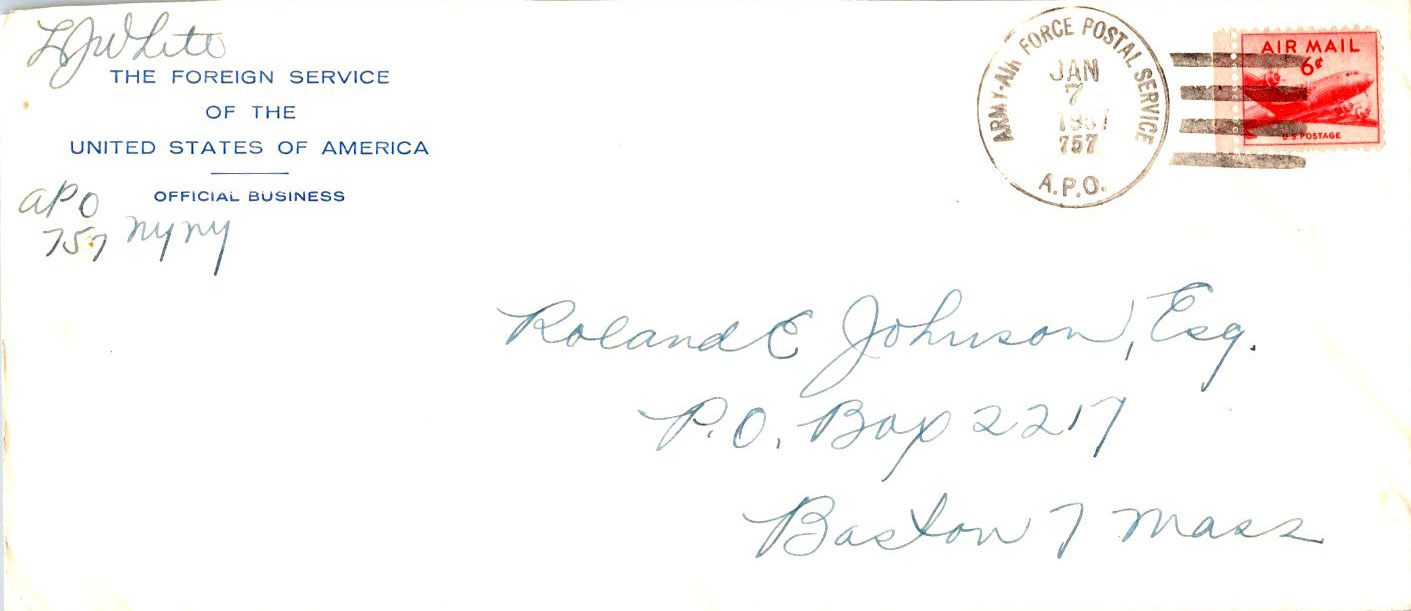 L J White
THE FOREIGN SERVICE
OF THE
UNITED STATES OF AMERICA
OFFICIAL BUSINESS
APO
757 NY NY
ARMY-AIR FORCE POSTAL SERVICE
JAN
7
757
A.P.O.
AIR MAIL
6¢
U.S. POSTAGE
Roland E Johnson, Esq.
P.O. Box 2217
Boston 7 Mass